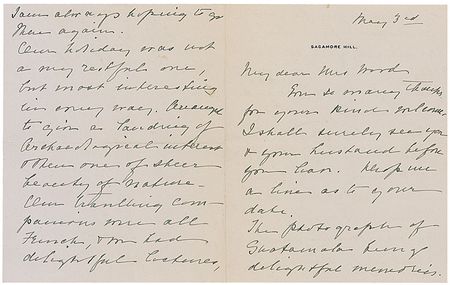 May 3rd
SAGAMORE HILL.
My dear Mrs Wood
Ever so many thanks
for your kind welcome.
I shall surely see you
& your husband before
you leave. Drop me
a line as to your
date.
The photographs of
Guatemala bring
delightful memories.
I am always hoping to go
there again.
Our holiday was not
a very restful one,
but most interesting
in every way. Arranged
to give us landing of
Archaeological interest
& then one of sheer
beauty of nature –
Our travelling com-
panions were all
French, & we had
delightful lectures,